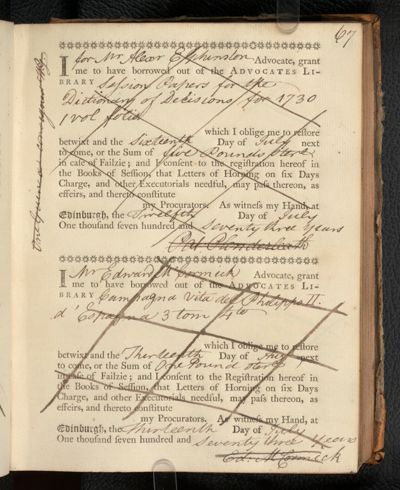 67
for Mr Alexr Elphinston Advocate, grant
I me to have borrowed out of the ADVOCATES LI-
BRARY Session Papers for the
Dictionary of Decisions for 1730
1 vol folio
which I oblige me to restore
betwixt and the Sixteenth Day of July next
to come, or the Sum of five Pounds Ster.
in case of Failzie; and I consent to the registration hereof in
the Books of Session, that Letters of Horning on six Days
Charge, and other Executorials needful, may pass thereon, as
effeirs, and thereto constitute
my Procurators. As witness my Hand, at
Edinburgh, the Twelfth Day of July
One thousand seven hundred and Seventy three years
Pat Clunderleath
I Mr Edward McCormick Advocate, grant
me to have borrowed out of the ADVOCATES LI-
BRARY Campagna vita del Philippo II.
d' Espagna 3 tom 4to
which I oblige me to restore
betwixt and the Thirteenth Day of July next
to come, or the Sum of One Pound Ster.
in case of Failzie; and I consent to the Registration hereof in
the Books of Session, that Letters of Horning on six Days
Charge, and other Executorials needful, may pass thereon, as
effeirs, and thereto constitute
my Procurators. As witness my Hand, at
Edinburgh, the Thirteenth Day of July
One thousand seven hundred and seventy three years
Edw. McCormick